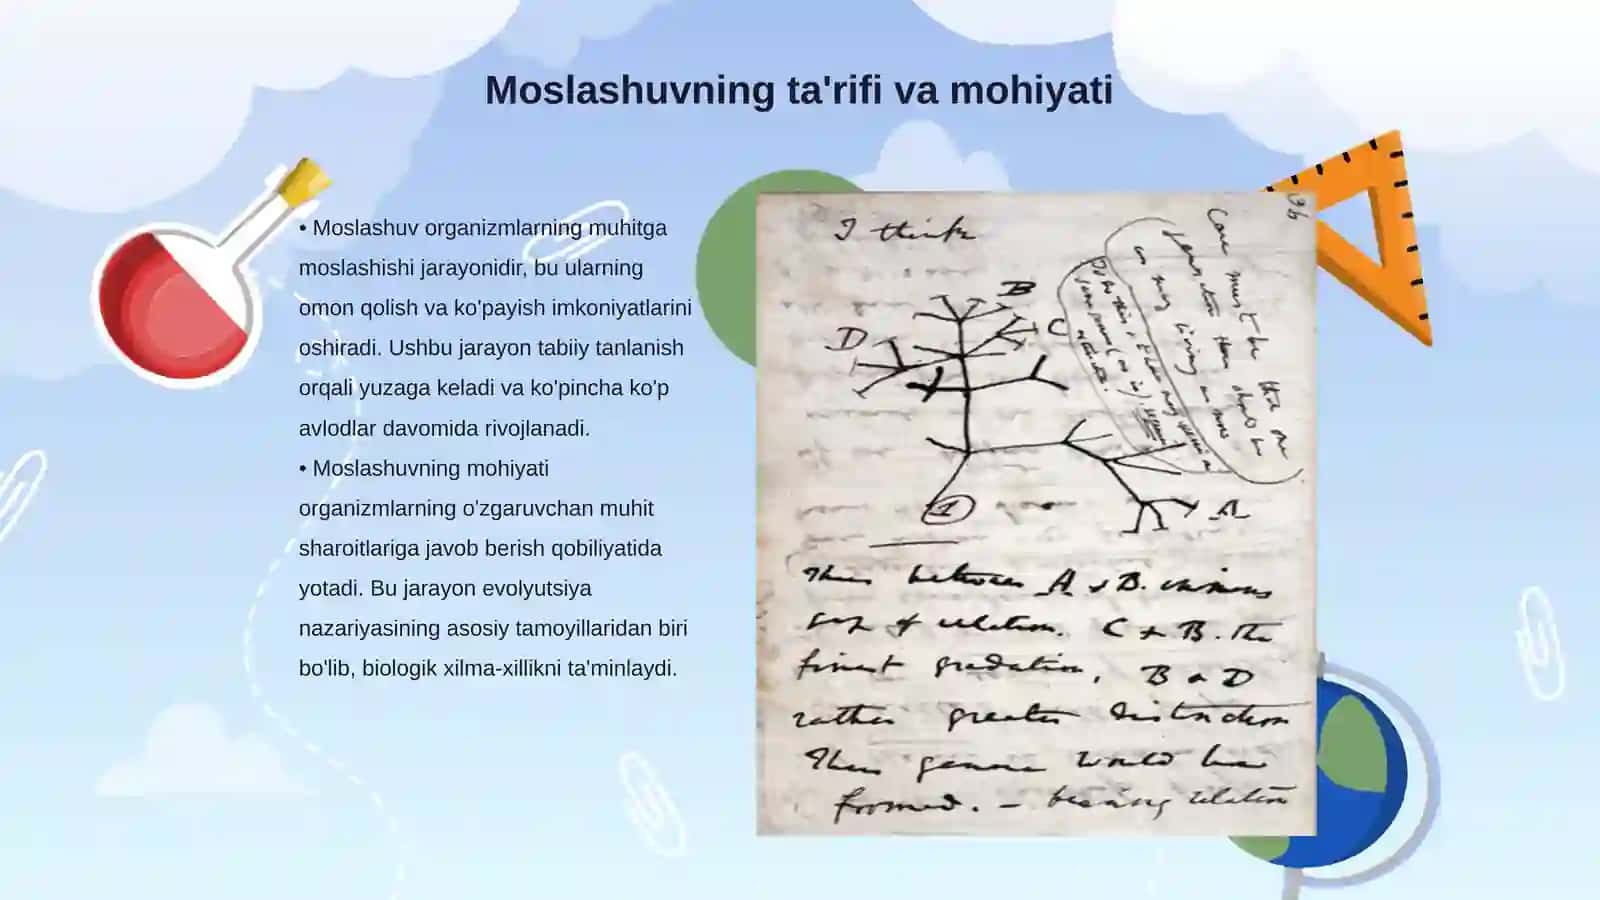 Moslashuvning ta'rifi va mohiyati
• Moslashuv organizmlarning muhitga
moslashishi jarayonidir, bu ularning
omon qolish va ko'payish imkoniyatlarini
oshiradi. Ushbu jarayon tabiiy tanlanish
orqali yuzaga keladi va ko'pincha ko'p
avlodlar davomida rivojlanadi.
• Moslashuvning mohiyati
organizmlarning o'zgaruvchan muhit
sharoitlariga javob berish qobiliyatida
yotadi. Bu jarayon evolyutsiya
nazariyasining asosiy tamoyillaridan biri
bo'lib, biologik xilma-xillikni ta'minlaydi.
36
I think
B
C
D
A
1
Case must be that one
generation then should be
as many living as now
Thus between A & B. immense
gap of relation. C & B. The
finest gradation, B & D
rather greater distinction
Thus genera would be
formed. — bearing relation